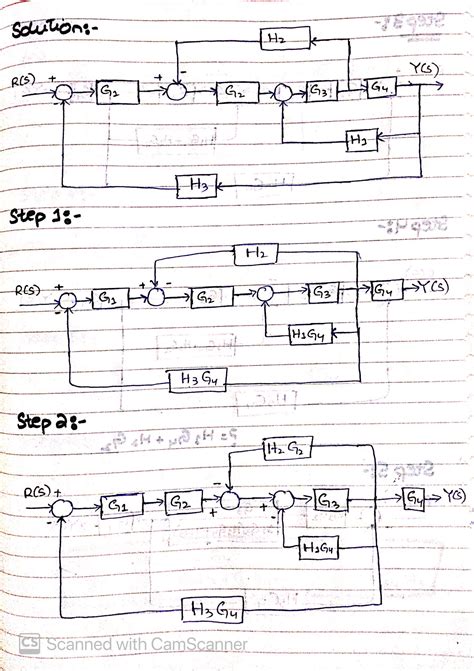 Solution:-
H2
R(S) + G1 + - G2 G3 G4 Y(S)
-
H1
H3
Step 1:-
H2
R(S) + G1 + - G2 G3 G4 Y(S)
-
H1G4
H3 G4
Step 2:-
H2 G2
R(S) + G1 G2 - + + G3 G4 Y(S)
- -
H1G4
H3 G4
CS Scanned with CamScanner